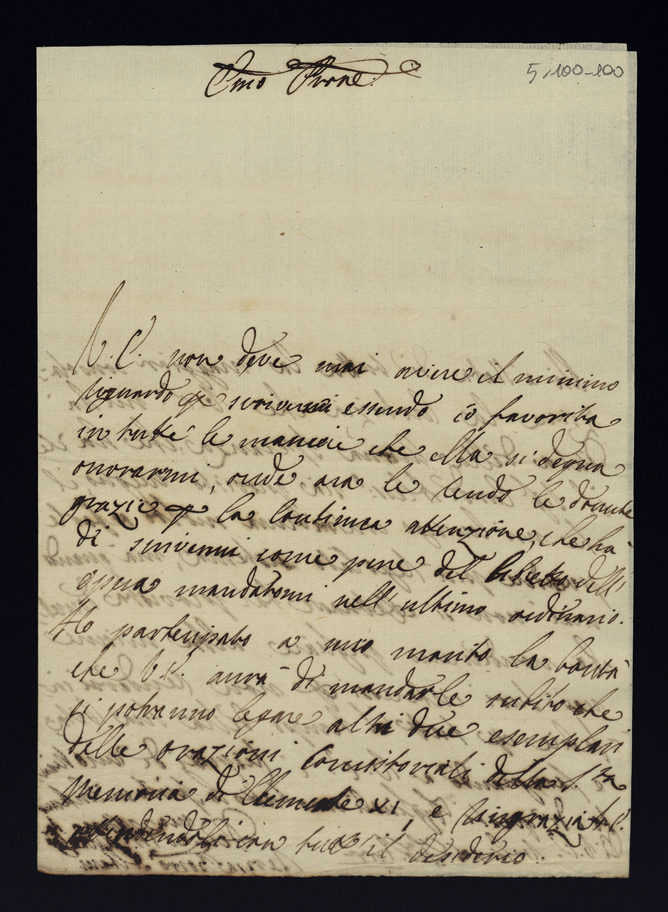 5,100-100
Emo Prone
V. E. non deve mai avere il minimo
riguardo p scrivermi essendo io favorita
in tutte le maniere che ella si degna
onorarmi, onde ora le rendo le dovute
grazie p la continua attenzione, che ha
di scrivermi come pure del libretto dell'
opera mandatomi nell'ultimo ordinario.
Ho partecipato a mio marito la bontà
che V.E. avrà di mandarle subito che
si potranno legare altri due esemplari
delle orazioni Concistoriali della S. ta
Memoria di Clemente XI, e ringrazia V.E.
attendendoli con tutto il desiderio.